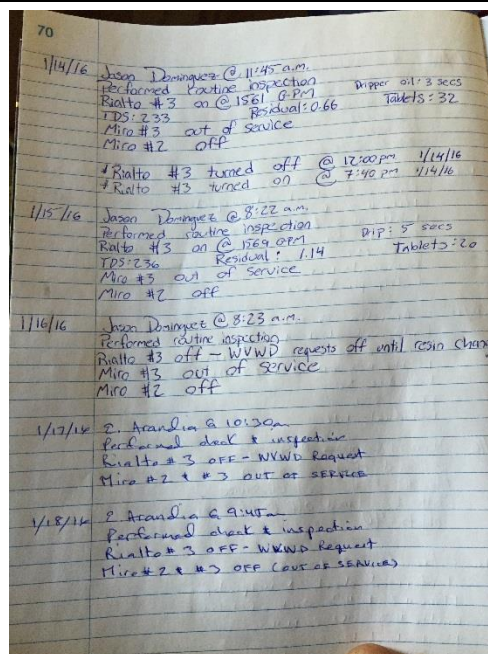 70
1/14/16 Jason Dominguez @ 11:45 a.m.
Performed routine inspection Dripper oil: 3 secs
Rialto #3 on @ 1561 GPM Tablets: 32
TDS: 233 Residual: 0.66
Miro #3 out of service
Miro #2 off
* Rialto #3 turned off @ 12:00 pm 1/14/16
* Rialto #3 turned on @ 7:40 pm 1/14/16
1/15/16 Jason Dominguez @ 8:22 a.m.
Performed routine inspection Drip: 5 secs
Rialto #3 on @ 1569 GPM Tablets: 20
TDS: 236 Residual: 1.14
Miro #3 out of service
Miro #2 off
1/16/16 Jason Dominguez @ 8:23 a.m.
Performed routine inspection
Rialto #3 off - WVWD requests off until resin chang
Miro #3 out of service
Miro #2 off
1/17/16 E. Arandia @ 10:30am
Performed check & inspection
Rialto # 3 OFF - WVWD Request
Miro #2 & #3 OUT OF SERVICE
1/18/16 E Arandia @ 9:45am
Performed check & inspection
Rialto # 3 OFF - WVWD Request
Miro #2 & #3 OFF (OUT OF SERVICE)